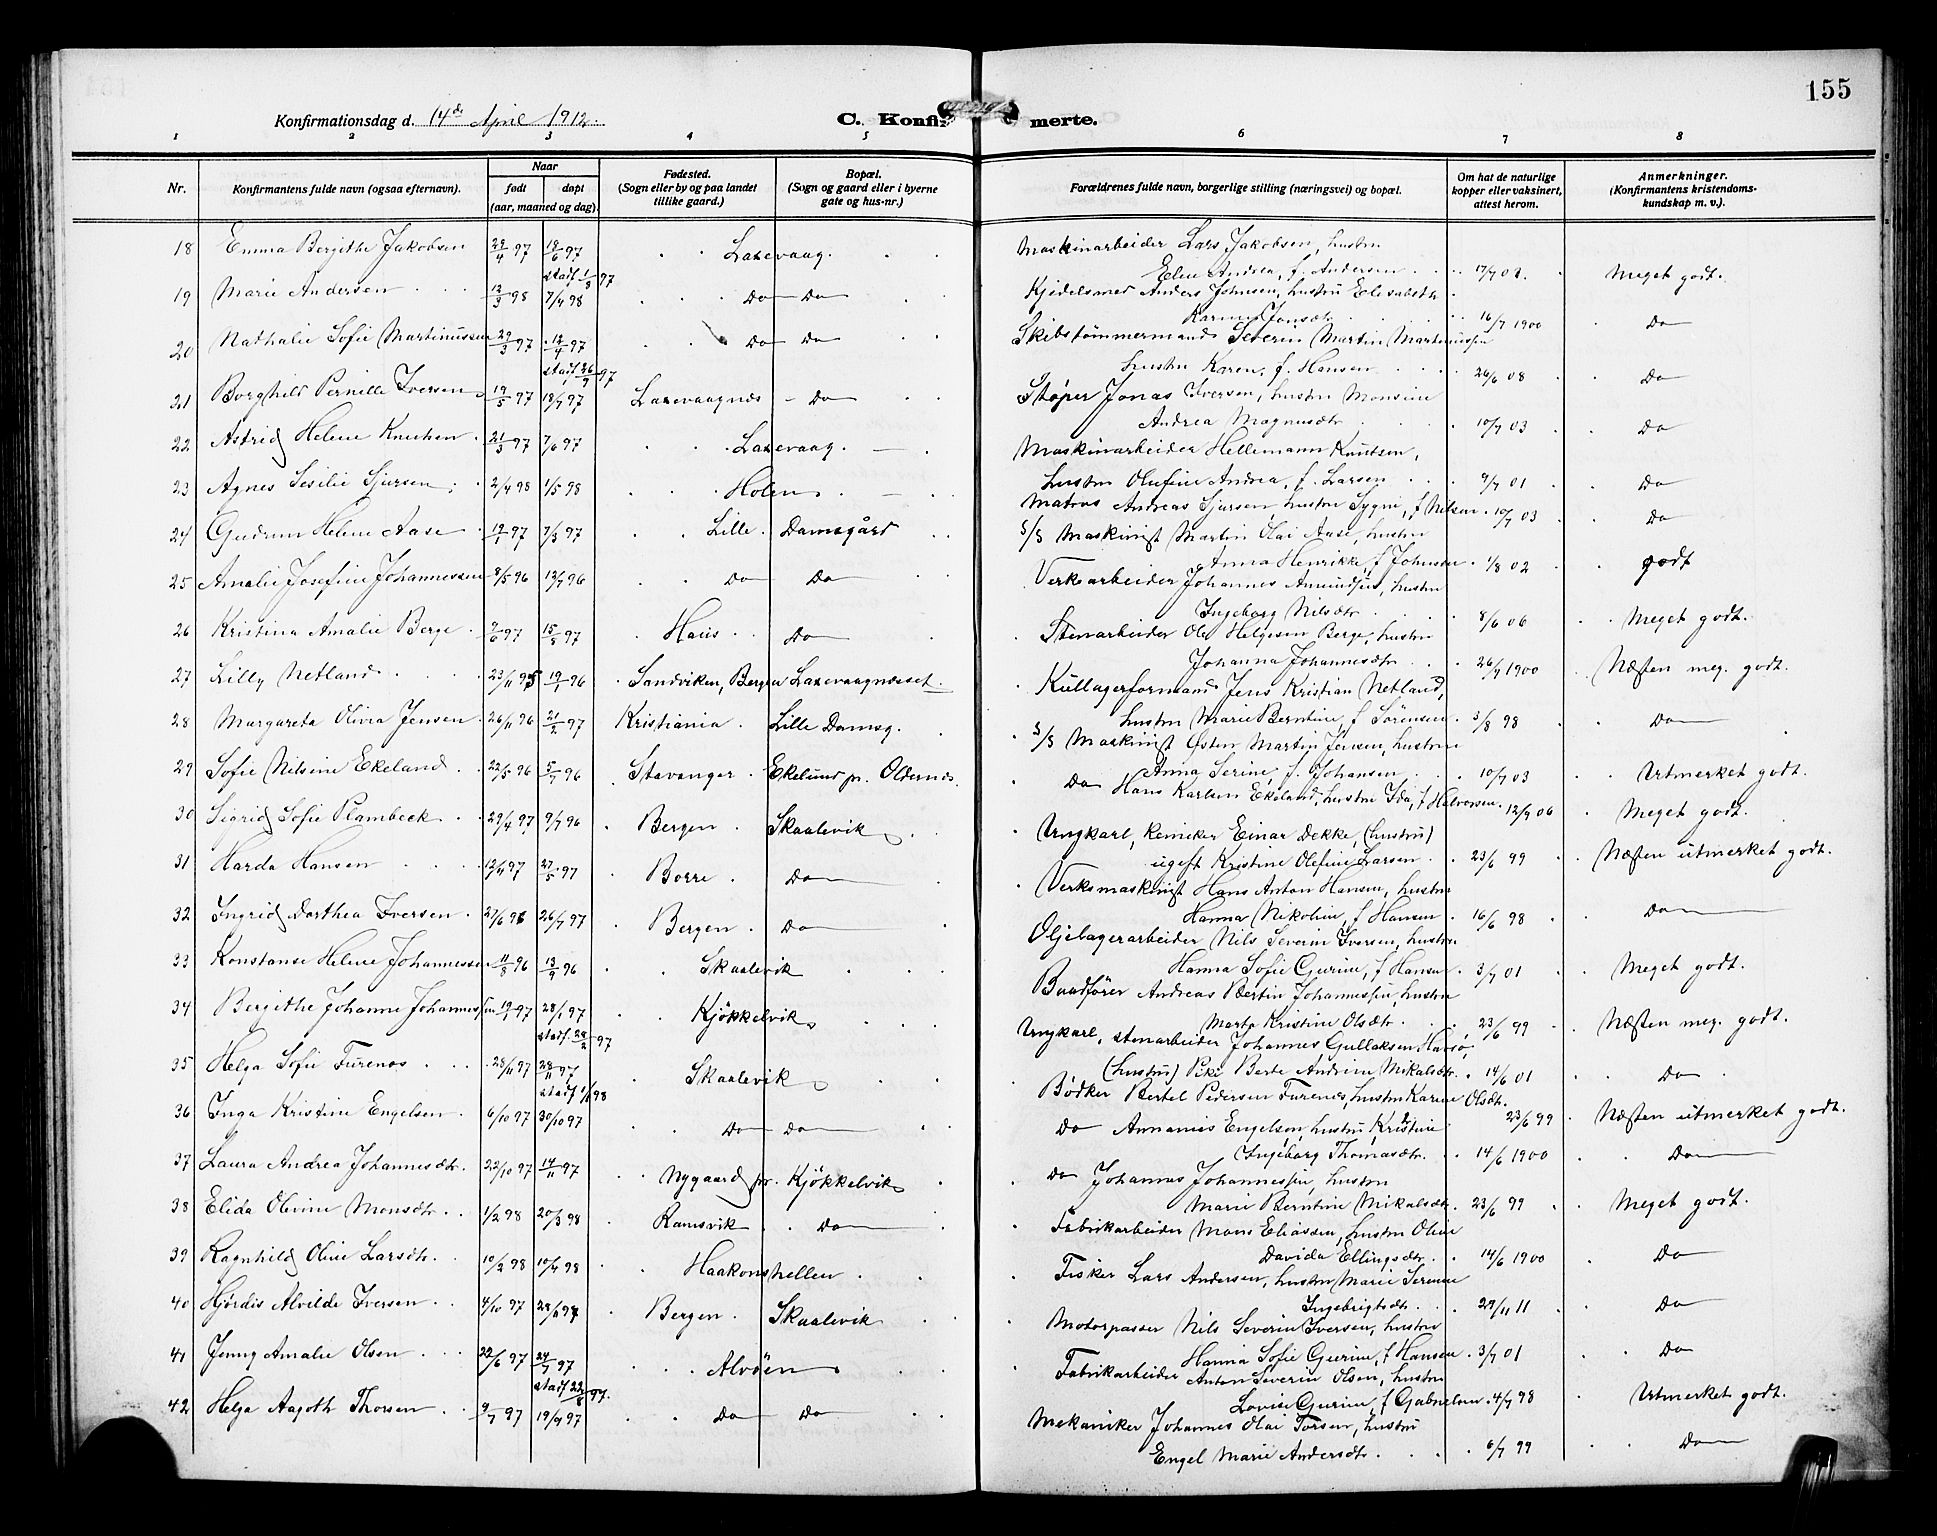 155
Konfirmationsdag d. 14de April 1912.
C. Konfirmerte.
1 2 3 4 5 6 7 8
Nr. Konfirmantens fulde navn (ogsaa efternavn). Naar født døpt (aar, maaned og dag). Fødested. (Sogn eller by og paa landet tillike gaard.) Bopæl. (Sogn og gaard eller i byerne gate og hus-nr.) Forældrenes fulde navn, borgerlige stilling (næringsvei) og bopæl. Om hat de naturlige kopper eller vaksinert, attest herom. Anmerkninger. (Konfirmantens kristendoms-kundskap m. v.).
18 Emma Bergithe Jakobsen 29/4 97 18/6 97 stadf. 1/8 97 Laxevaag. Maskinarbeider Lars Jakobsen, hustru
Elen Andrea, f. Andersen 17/7 02. Meget godt.
19 Marie Andersen 12/3 98 7/4 98 Do Do Kjedelsmed Anders Johnsen, hustru Elisabeth
Karine Jonsdtr 16/7 1900 Do
20 Nathalie Sofie Martinussen 29/3 97 12/4 97 stadf. 26/9 97 Do Do Skibstømmermand Severin Martin Martinussen
hustru Karen, f. Hansen 26/6 08 Do
21 Borghild Pernille Iversen 19/5 97 18/7 97 Laxevaagnes Do Støper Jonas Iversen, hustru Monsine
Andrea Magnusdtr 10/7 03 Do
22 Astrid Helene Knutsen 21/3 97 7/6 97 Laxevaag. Maskinarbeider Hellemann Knutsen,
hustru Olufine Andrea, f. Larsen 9/7 01 Do
23 Agnes Sesilie Sjursen 2/4 98 1/5 98 Holen Matros Andreas Sjursen, hustru Sygni, f Nilsen 10/7 03 Do
24 Gudrun Helene Aase 19/1 97 7/3 97 Lille Damsgård S/S Maskinist Martin Olai Aase, hustru
Anna Henrikke, f Johnsen 1/8 02 godt
25 Amalie Josefine Johannessen 8/5 96 12/7 96 Do Do Verksarbeider Johannes Amundsen, hustru
Ingeborg Nilsdtr 8/6 06 Meget godt.
26 Kristina Amalie Berge 7/6 97 15/8 97 Haus Do Stenarbeider Ole Helgesen Berge, hustru
Johanna Johannesdtr 26/7 1900 Næsten meg. godt.
27 Lilly Netland 23/11 95 19/1 96 Sandviken, Bergen Laxevaagneset Kullagerformand Jens Kristian Netland,
hustru Marie Berntine, f Sörensen 3/8 98 Do
28 Margareta Olivia Jensen 26/11 96 21/2 97 Kristiania Lille Damsg. S/S Maskinist Østen Martin Jensen, hustru
Anna Serine, f. Johansen 10/7 03 Utmerket godt.
29 Sofie Nilsine Ekeland 22/5 96 5/7 96 Stavanger Ekelund pr. Oldernes Do Hans Karlsen Ekeland, hustru Ida, f Halvorsen 12/7 06 Meget godt.
30 Sigrid Sofie Plambeck 29/4 97 9/7 96 Bergen Skaalevik Ungkarl, kemiker Einar Dekke, (hustru)
ugift Kristine Olefine Larsen 23/6 99 Næsten utmerket godt.
31 Harda Hansen 12/4 97 27/5 97 Borre Do Verksmaskinist Hans Anton Hansen, hustru
Hanna Nikoline, f Hansen 16/6 98 Do
32 Ingrid Dorthea Iversen 27/6 96 26/7 97 Bergen Do Oljelagerarbeider Nils Severin Iversen, hustru
Hanna Sofie Gurine, f Hansen 3/7 01 Meget godt.
33 Konstanse Helene Johannessen 11/8 96 13/9 96 Skaalevik Baadfører Andreas Bertin Johannessen, hustru
Marta Kristine Olsdtr 23/6 99 Næsten meg. godt.
34 Bergithe Johanne Johannessen 19/1 97 28/1 97 stadf. 28/2 97 Kjøkkelvik Ungkarl, stenarbeider Johannes Gullaksen
(hustru) Pike Berte Andrine Mikalsdtr. 14/6 01 Do
35 Helga Sofie Furenes 23/11 97 28/11 97 stadf 1/1 98 Skaalevik Bødker Bertel Pedersen Furenes, hustru Karine Olsdtr.
23/6 99 Næsten utmerket godt.
36 Inga Kristine Engelsen 6/10 97 30/10 97 Do Do Do Annanias Engelsen, hustru Kristine
Ingeborg Thomasdtr. 14/6 1900 Do
37 Laura Andrea Johannesdtr. 22/10 97 14/11 97 Nygaard pr. Kjøkkelvik Do Johannes Johannessen, hustru
Marie Berntine Mikalsdtr. 23/6 99 Meget godt.
38 Elida Olivine Monsdtr. 1/2 98 20/3 98 Ramsvik Do Fabrikarbeider Mons Eliassen, hustru Oline
Davida Ellingsdtr. 14/6 1900 Do
39 Ragnhild Oline Larsdtr. 10/2 98 10/4 98 Haakonshellen Fisker Lars Andersen, hustru Marie Serine
Ingebrigtsdtr. 29/11 11 Do
40 Hjørdis Alvilde Iversen 4/10 97 28/11 97 Bergen Skaalevik Motorpasser Nils Severin Iversen, hustru
Hanna Sofie Gurine, f Hansen 3/7 01 Do
41 Jenny Amalie Olsen 22/6 97 24/7 97 stadf 22/8 97. Alvöen Fabrikarbeider Anton Severin Olsen, hustru
Lovise Gurine, f Gabrielsen 4/7 98 Utmerket godt.
42 Helga Aagoth Thorsen 9/7 97 19/9 97 Do Do Mekaniker Johannes Olai Torsen, hustru
Engel Marie Andersdtr 6/7 99 Do